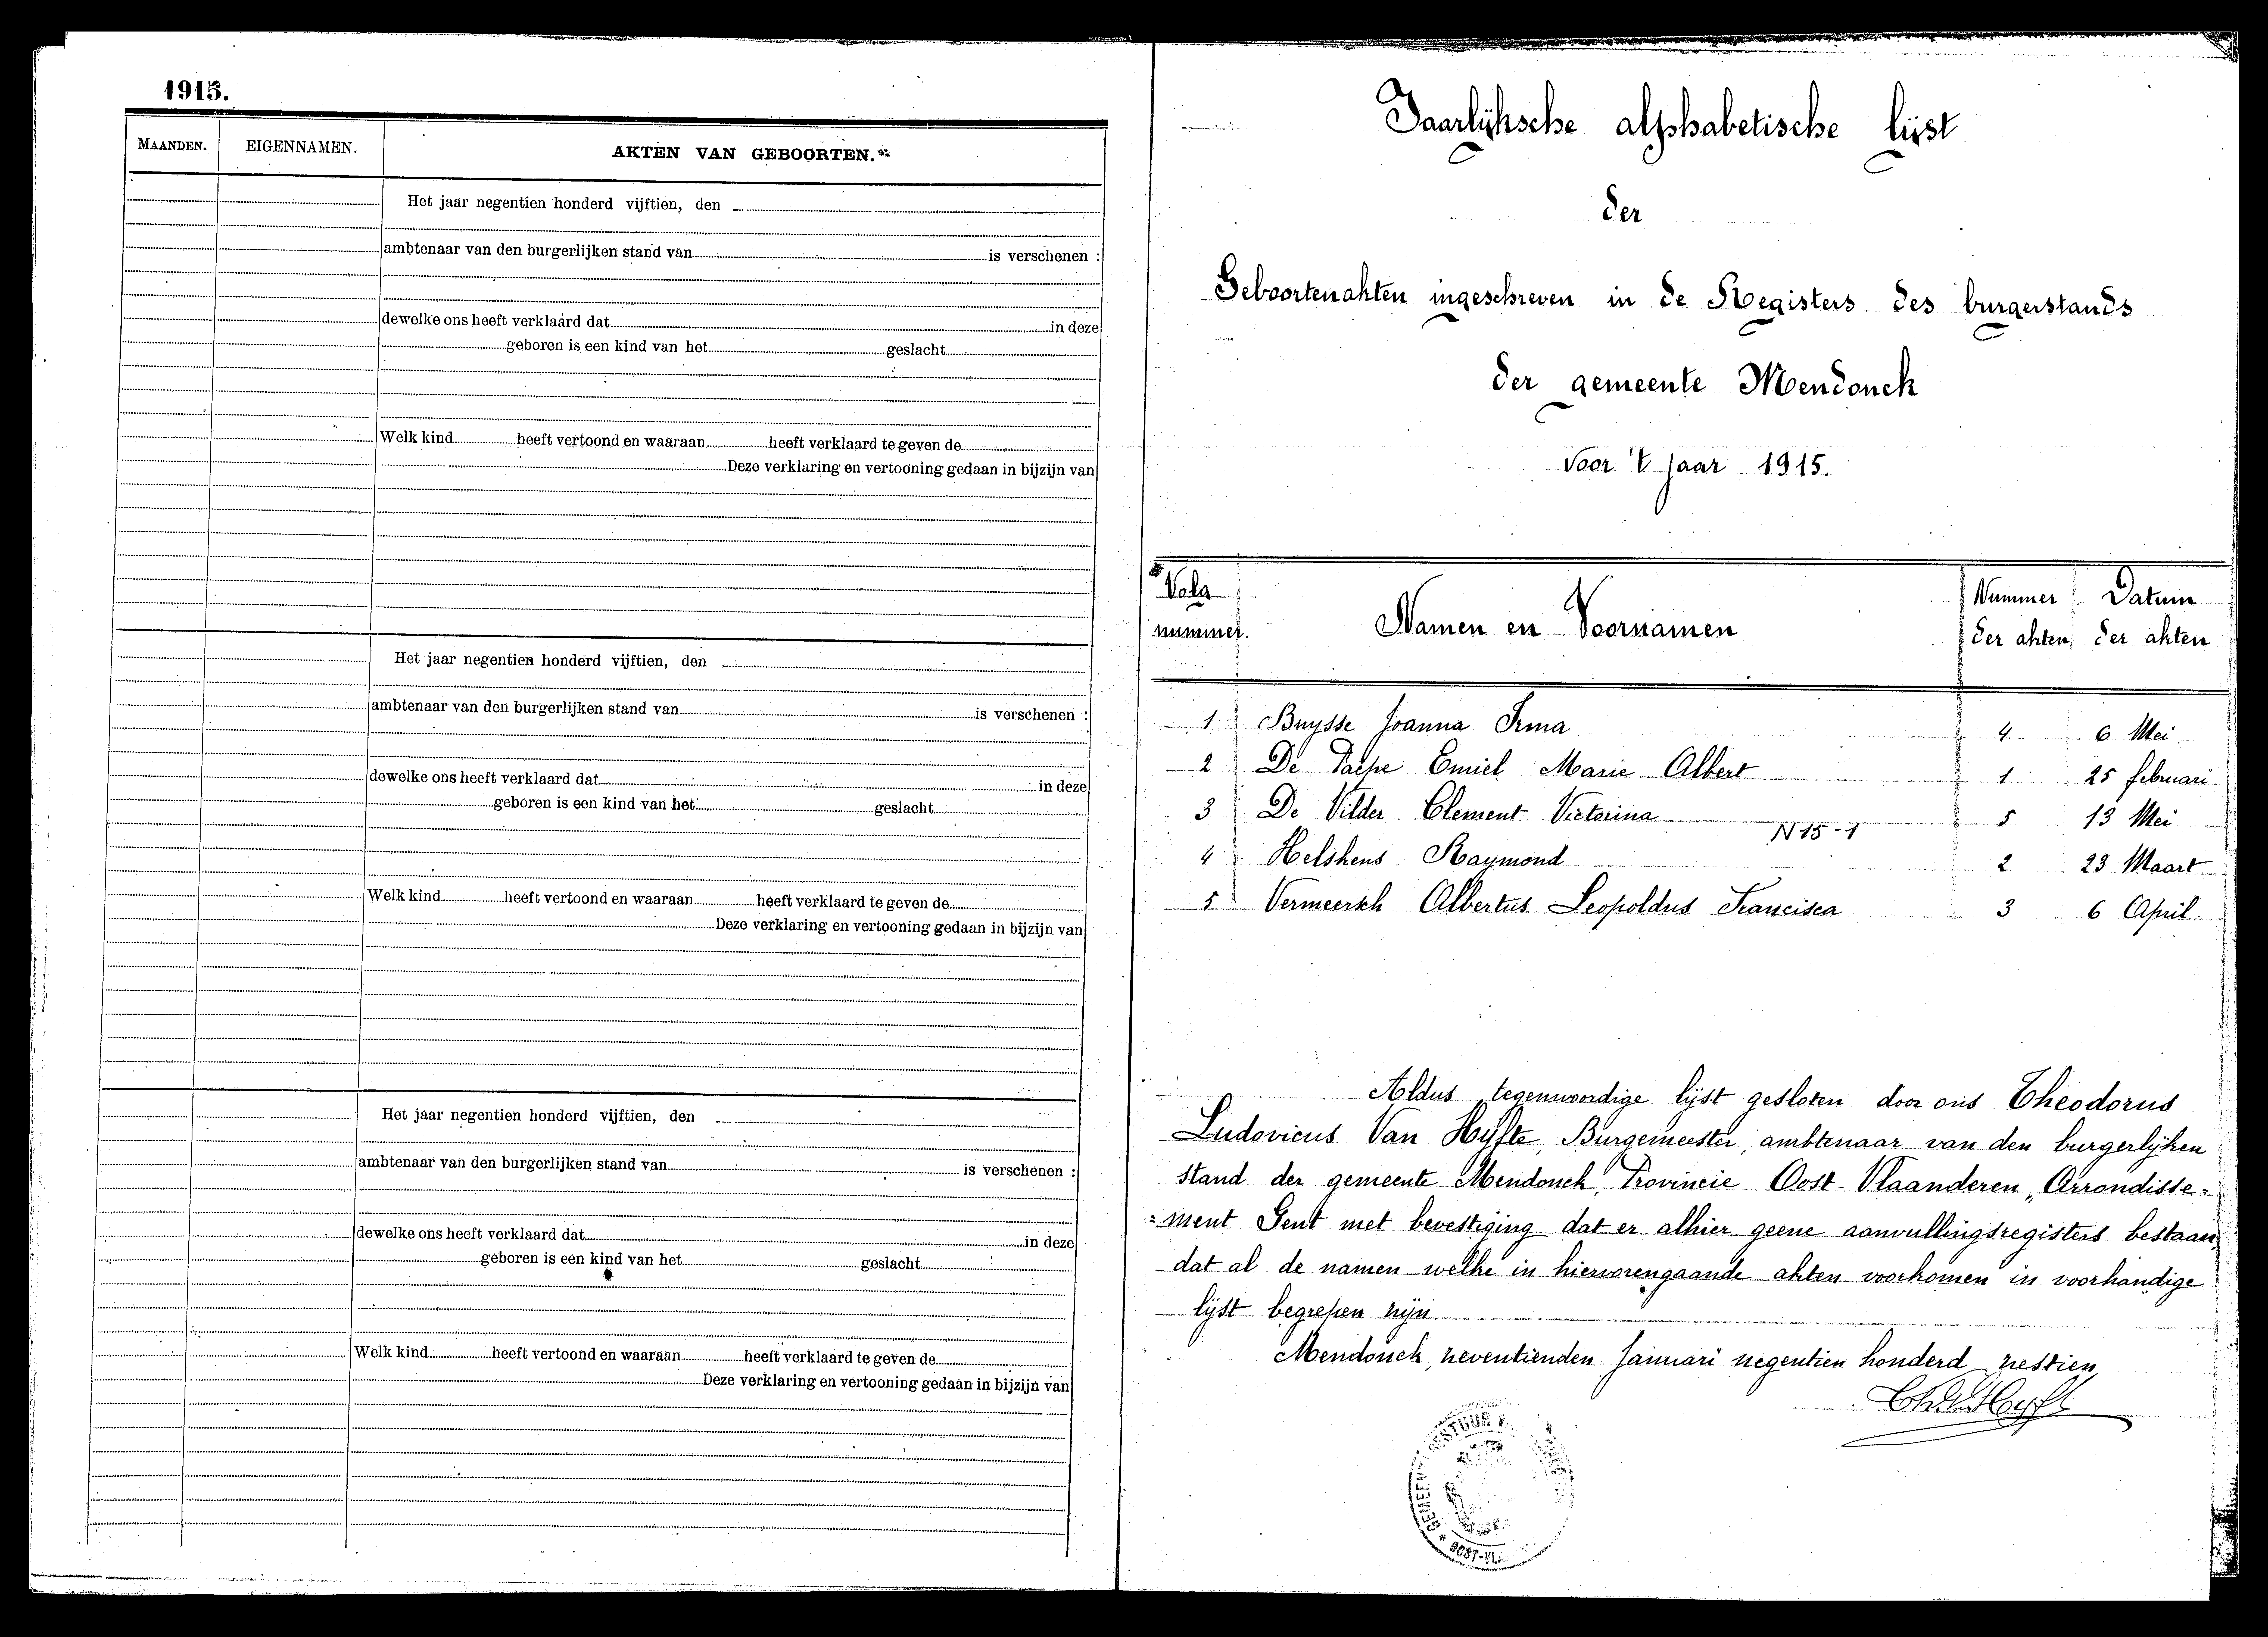 1915.
MAANDEN.
EIGENNAMEN.
AKTEN VAN GEBOORTEN.
Het jaar negentien honderd vijftien, den
ambtenaar van den burgerlijken stand van is verschenen :
dewelke ons heeft verklaard dat in deze
geboren is een kind van het geslacht
Welk kind heeft vertoond en waaraan heeft verklaard te geven de
Deze verklaring en vertooning gedaan in bijzijn van
Het jaar negentien honderd vijftien, den
ambtenaar van den burgerlijken stand van is verschenen :
dewelke ons heeft verklaard dat in deze
geboren is een kind van het geslacht
Welk kind heeft vertoond en waaraan heeft verklaard te geven de
Deze verklaring en vertooning gedaan in bijzijn van
Het jaar negentien honderd vijftien, den
ambtenaar van den burgerlijken stand van is verschenen :
dewelke ons heeft verklaard dat in deze
geboren is een kind van het geslacht
Welk kind heeft vertoond en waaraan heeft verklaard te geven de
Deze verklaring en vertooning gedaan in bijzijn van
Jaarlijksche alphabetische lijst
der
Geboortenakten ingeschreven in de Registers des burgerstands
der gemeente Mendonck
voor 't jaar 1915.
Volg nummer.
Namen en Voornamen
Nummer der akten
Datum der akten
1 Buysse Joanna Irma 4 6 Mei
2 De Paepe Emiel Marie Albert 1 25 februari
3 De Vilder Clement Victorina 5 13 Mei
N 15-1
4 Helskens Raymond 2 23 Maart
5 Vermeersch Albertus Leopoldus Francisca 3 6 April
Aldus tegenwoordige lijst gesloten door ons Theodorus
Ludovicus Van Hyfte, Burgemeester, ambtenaar van den burgerlijken
stand der gemeente Mendonck, Provincie Oost-Vlaanderen, Arrondisse-
ment Gent met bevestiging dat er alhier geene aanvullingsregisters bestaan,
dat al de namen welke in hiervorengaande akten voorkomen in voorhandige
lijst begrepen zijn.
Mendonck, zeventienden Januari negentien honderd zestien,